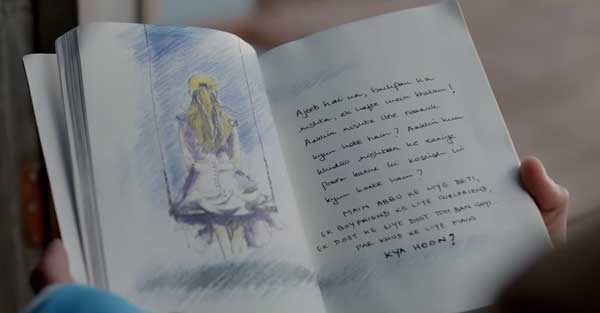 Ajeeb hai na, bachpan ka
rishta, ek hafte mein khatam!
Aakhir rishte itne naazuk
kyun hote hain? Aakhir hum
khudko rishton ke zariye
poora karne ki koshish hi
kyun karte hain?
MAIN ABBU KE LIYE BETI,
EK BOYFRIEND KE LIYE GIRLFRIEND,
EK DOST KE LIYE DOST TOH BAN GAYI
PAR KHUD KE LIYE MAIN
KYA HOON?